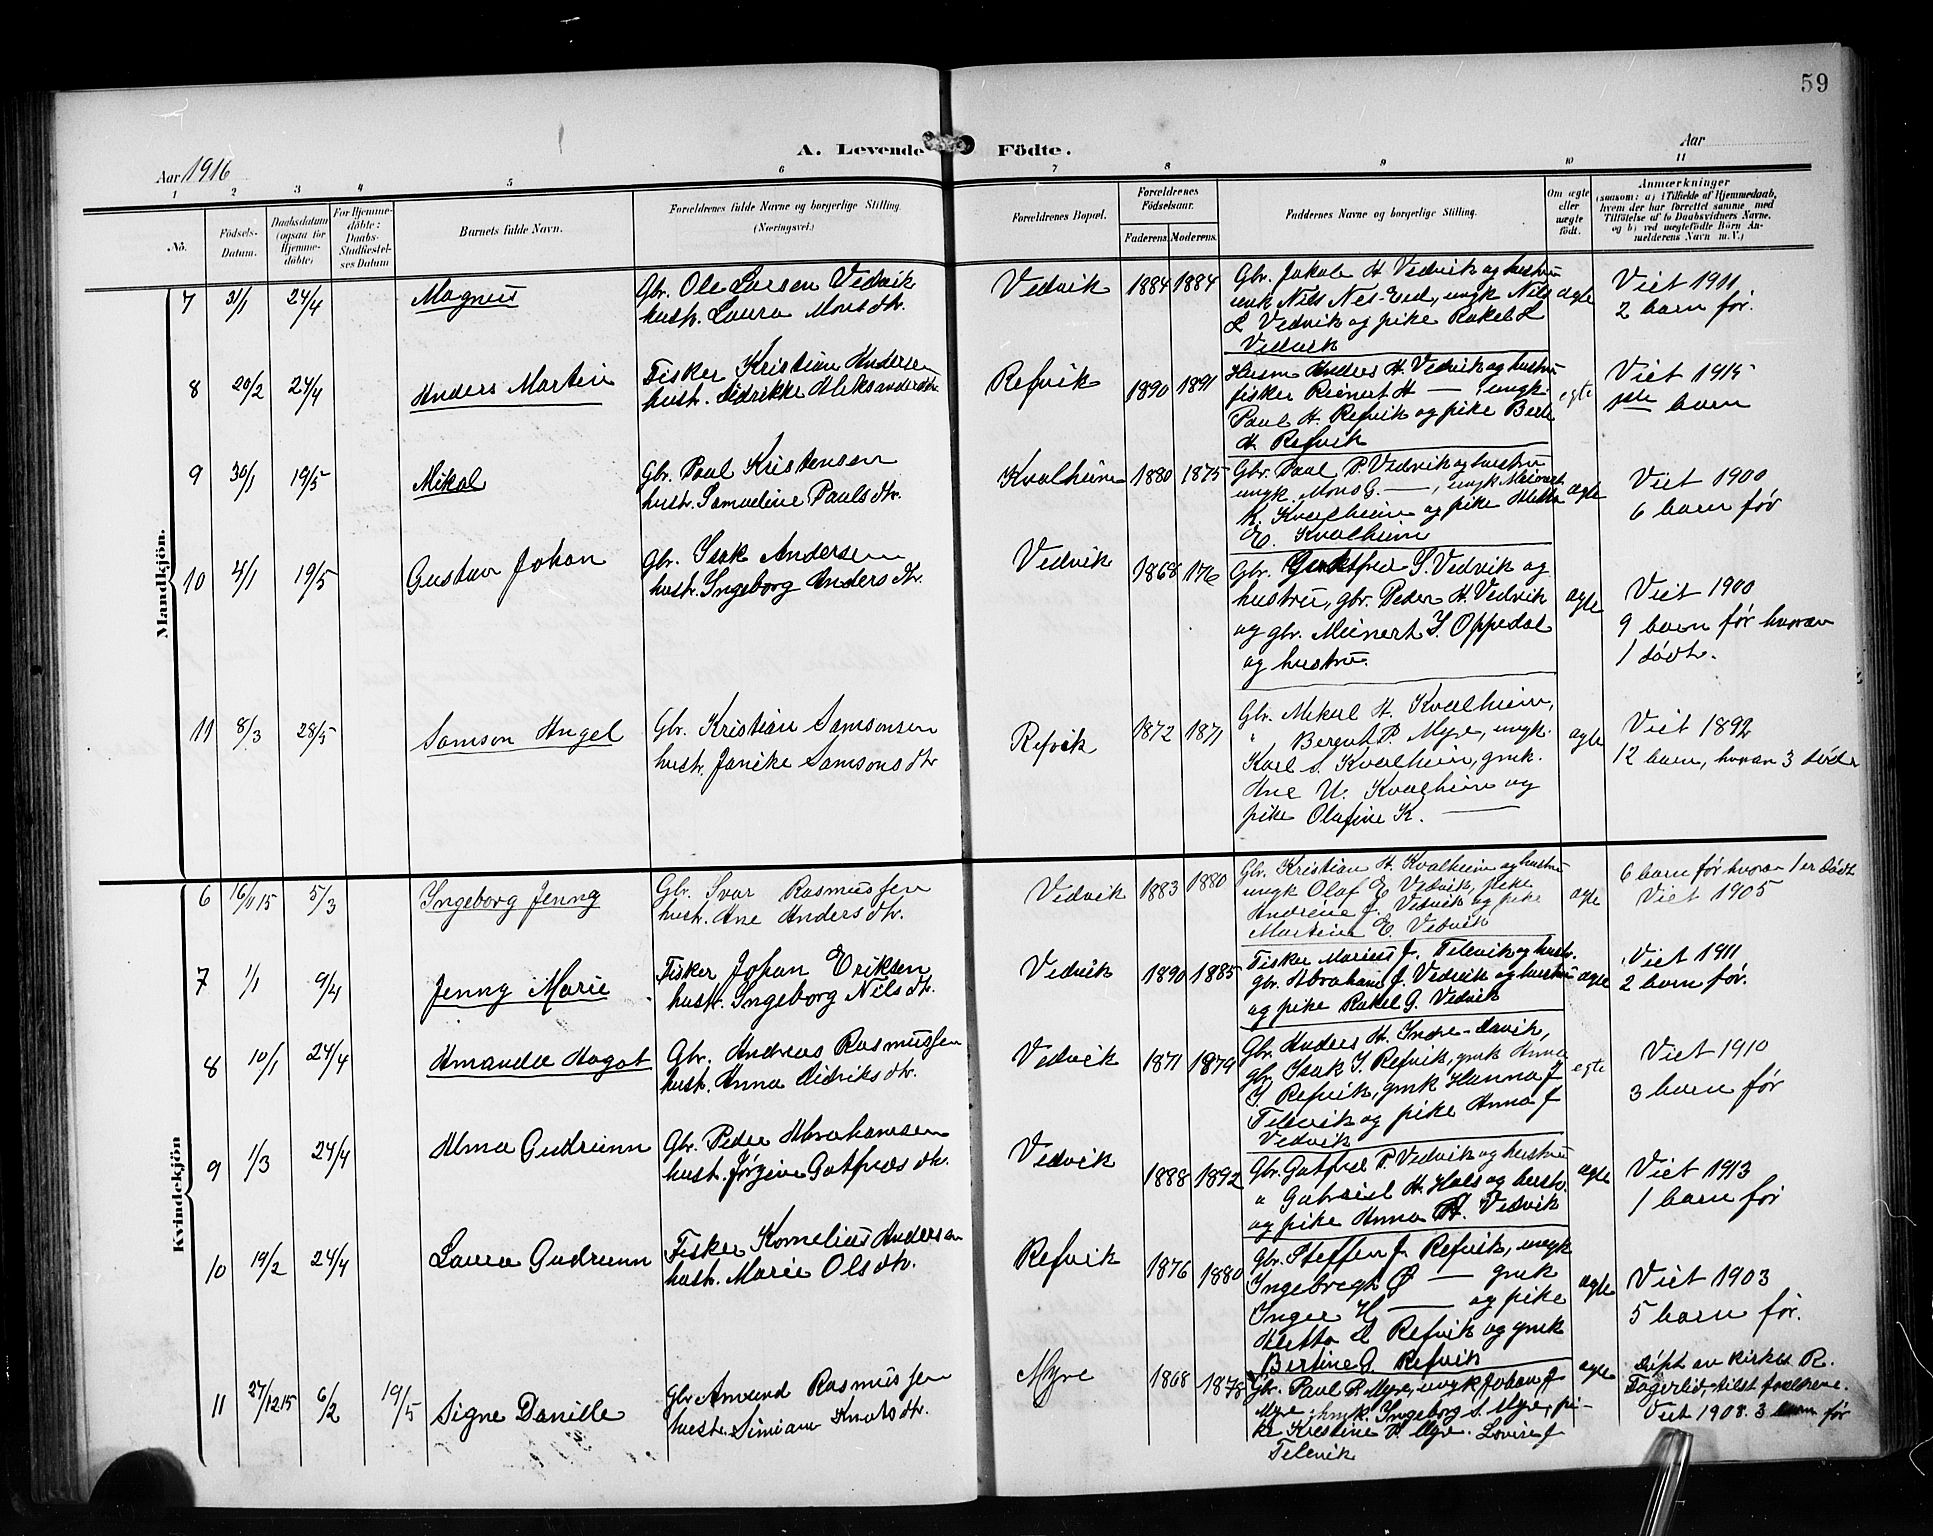 59
A. Levende Födte.
Aar 1916
Aar
1 2 3 4 5 6 7 8 9 10 11
No.
Födsels-Datum.
Daabsdatum (ogsaa for Hjemmedöbte)
For Hjemmedöbte: Daabs-Stadfæstelses Datum
Barnets fulde Navn.
Forældrenes fulde Navne og borgerlige Stilling. (Næringsvei.)
Forældrenes Bopæl.
Forældrenes Födselsaar.
Faderens. Moderens.
Faddernes Navne og borgerlige Stilling.
Om ægte eller uægte födt.
Anmærkninger
(saasom: a) i Tilfælde af Hjemmedaab, hvem der har forrettet samme med Tilföielse af to Daabsvidners Navne, og b) ved uægtefödte Börn Anmelderens Navn m. V.)
Mandkjön.
7 31/1 24/4 Magnus
Gbr. Ole Larsen Vedvik
hustr. Laura Monsdtr.
Vedvik 1884 1884
Gbr. Jakob A. Vedvik og hustru
ungk Nils Nes-Eid, ungk Nils
L Vedvik og pike Rakel L
Vedvik
ægte
Viet 1911
2 barn før.
8 20/2 24/4 Anders Martin
Fisker Kristian Andersen
hustr. Didrikke Aleksandersdtr
Refvik 1890 1891
Husm Anders A. Vedvik og hustru
fisker Reinert A — ungk.
Paul A. Refvik og pike Berte
A. Refvik
egte
Viet 1915
1ste barn
9 30/1 19/5 Mikal
Gbr. Paul Kristensen
hustr. Samueline Paulsdtr.
Kvalheim 1880 1875
Gbr. Paul P. Vedvik og hustru
ungk. Mons G. —, ungk Meinert
K. Kvalheim og pike Aletta
E. Kvalheim
ægte
Viet 1900
6 barn før
10 4/1 19/5 Gustav Johan
Gbr. Isak Andersen
hustr. Ingeborg Andersdtr.
Vedvik 1868 176
Gbr. Gottfred S. Vedvik og
hustru, gbr. Peder A. Vedvik
og gbr. Meinert I. Oppedal
og hustru.
ægte
Viet 1900
9 barn før hvorav
1 dødt.
11 8/3 28/5 Samson Angel
Gbr. Kristian Samsonsen
hustr. Janike Samsonsdtr
Refvik 1872 1871
Gbr. Mikal A. Kvalheim,
" Bernt P. Myre, ungk.
Karl S. Kvalheim, gmk.
Ane U. Kvalheim og
pike Olafine K. —
ægte
Viet 1892
12 barn, hvorav 3 døde
Kvindekjön
6 16/11 15 5/3 Ingeborg Jenny
Gbr. Ivar Rasmussen
hustr. Ane Andersdtr.
Vedvik 1883 1880
Gbr. Kristian A. Kvalheim og hustru
ungk Olaf E Vedvik, pike
Andreine J. Vedvik og pike
Martine E. Vedvik
ægte
6 barn før hvorav 1 er dødt
Viet 1905
7 1/1 9/4 Jenny Marie
Fisker Johan Eriksen
hustr. Ingeborg Nilsdtr.
Vedvik 1890 1885
Fisker Marius J. Televik og hustr.
gbr. Abraham J. Vedvik og hustru
og pike Rakel G. Vedvik
ægte
Viet 1911
2 barn før.
8 10/1 24/4 Amanda Hagot
Gbr. Andreas Rasmussen
hustr. Anna Didriksdtr.
Vedvik 1871 1879
Gbr. Anders A. Indre-Davik,
gbr. Isak I. Refvik, gmk Anna
I. Refvik, gmk Hanna J
Televik og pike Anna J
Vedvik
egte
Viet 1910
3 barn før
9 1/3 24/4 Alma Gudrunn
Gbr. Peder Abrahamsen
hustr. Jørgine Gotfredsdtr.
Vedvik 1888 1892
Gbr. Gotfred P. Vedvik og hustru
" Gabriel A. Hals og hustr.
og pike Anna A. Vedvik
ægte
Viet 1913
1 barn før
10 19/2 24/4 Laura Gudrunn
Fisker Kornelius Andersen
hustr. Marie Olsdtr.
Refvik 1876 1880
Gbr. Steffen J. Refvik, ungk
Ingebregt Ø — gmk
Inger H — og pike
Aletta D Refvik og gmk
Bertine G. Refvik
ægte
Viet 1903
5 barn før.
11 27/12 15 6/2 19/5 Signe Danille
Gbr Amund Rasmussen
hustr. Simiane Knutsdtr.
Myre 1868 1878
Gbr. Paul P. Myre, ungk Johan J
Myre, gmk. Ingeborg S. Myre, pi-
ke Kristine P. Myre. Lovise J
Televik
ægte
Døpt av kirkes. R.
Fagerlid, tilst foreldrene.
Viet 1908. 3 barn før